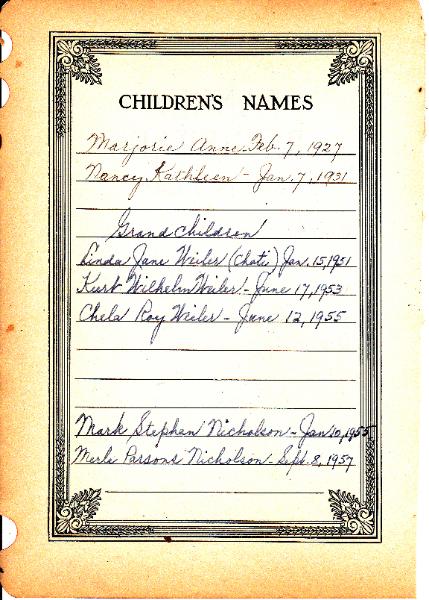 CHILDREN'S NAMES
Marjorie Anne Feb. 7, 1927
Nancy Kathleen - Jan. 7, 1931
Grand children
Linda Jane Weiler (Chati) Jan. 15, 1951
Kurt Wilhelm Weiler - June 17, 1953
Chela Roy Weiler - June 12, 1955
Mark Stephan Nicholson - Jan 10, 1955
Merle Parsons Nicholson Sept. 8, 1957